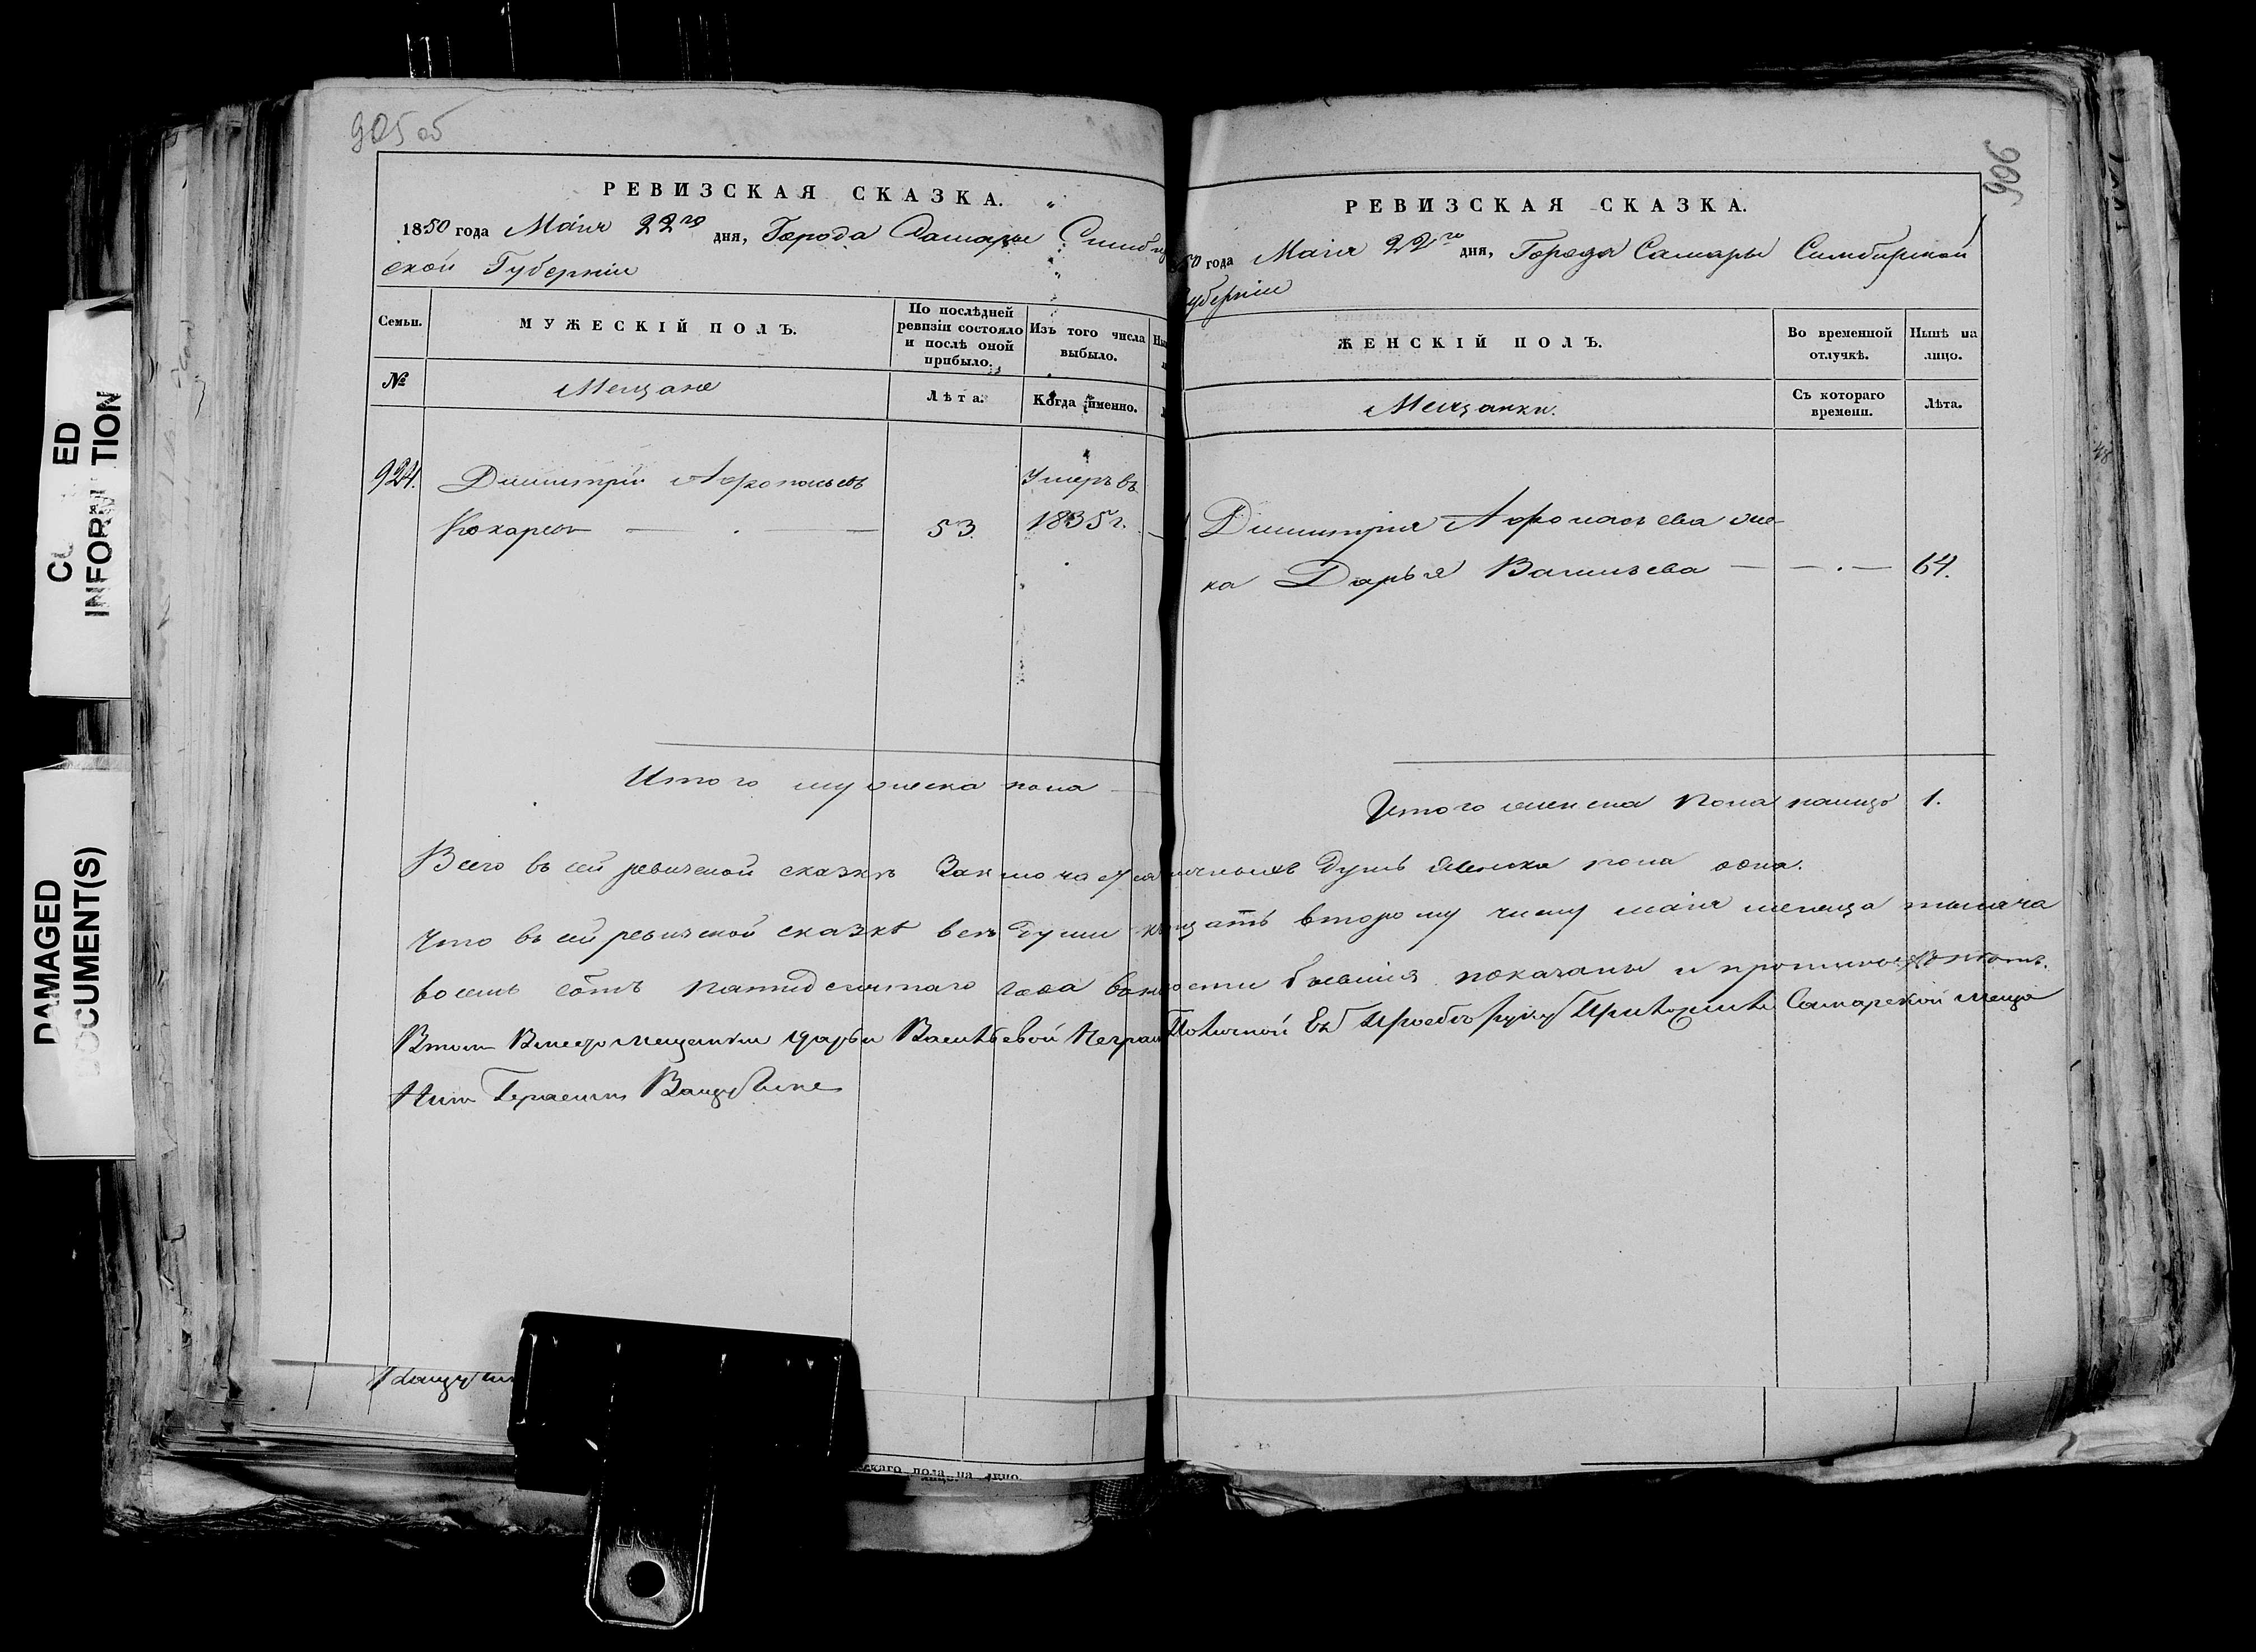 905 об
РЕВИЗСКАЯ СКАЗКА.
1850 года Маія 22го дня, Города Самары Симбир
ской Губерніи
Семьи.
МУЖЕСКІЙ ПОЛЪ.
По послѣдней
ревизіи состояло
и послѣ оной
прибыло.
Изъ того числа
выбыло.
№
Мещане
Лѣта.
Когда именно.
924.
Димитрій Афонасьевъ
Кокаревъ
53.
Умеръ въ
1835 г.
Итого мужеска пола
906
РЕВИЗСКАЯ СКАЗКА.
50 года Маія 22го дня, Города Самары Симбирской
Губерніи
ЖЕНСКІЙ ПОЛЪ.
Во временной
отлучкѣ.
Нынѣ на
лицо.
Мещанки.
Съ котораго
времени.
Лѣта.
Димитрія Афонасьева же-
на Дарья Васильева
64.
Итого женска пола налицо 1.
Всего въ сей ревизской сказкѣ наличныхъ душъ женска пола одна.
Что въ сей ревизской сказкѣ всѣ души второму числу маія месеца тысяча
восемь сотъ пятидесятаго года бывшія показаны и
Въ томъ вместо мещанки Дарьи Васильевой неграмотной Ея прозбѣ руку приложилъ Самарской меща
нинъ Герасимъ
DAMAGED
DOCUMENT(S)
INFORM TION
скаго пола на лицо.